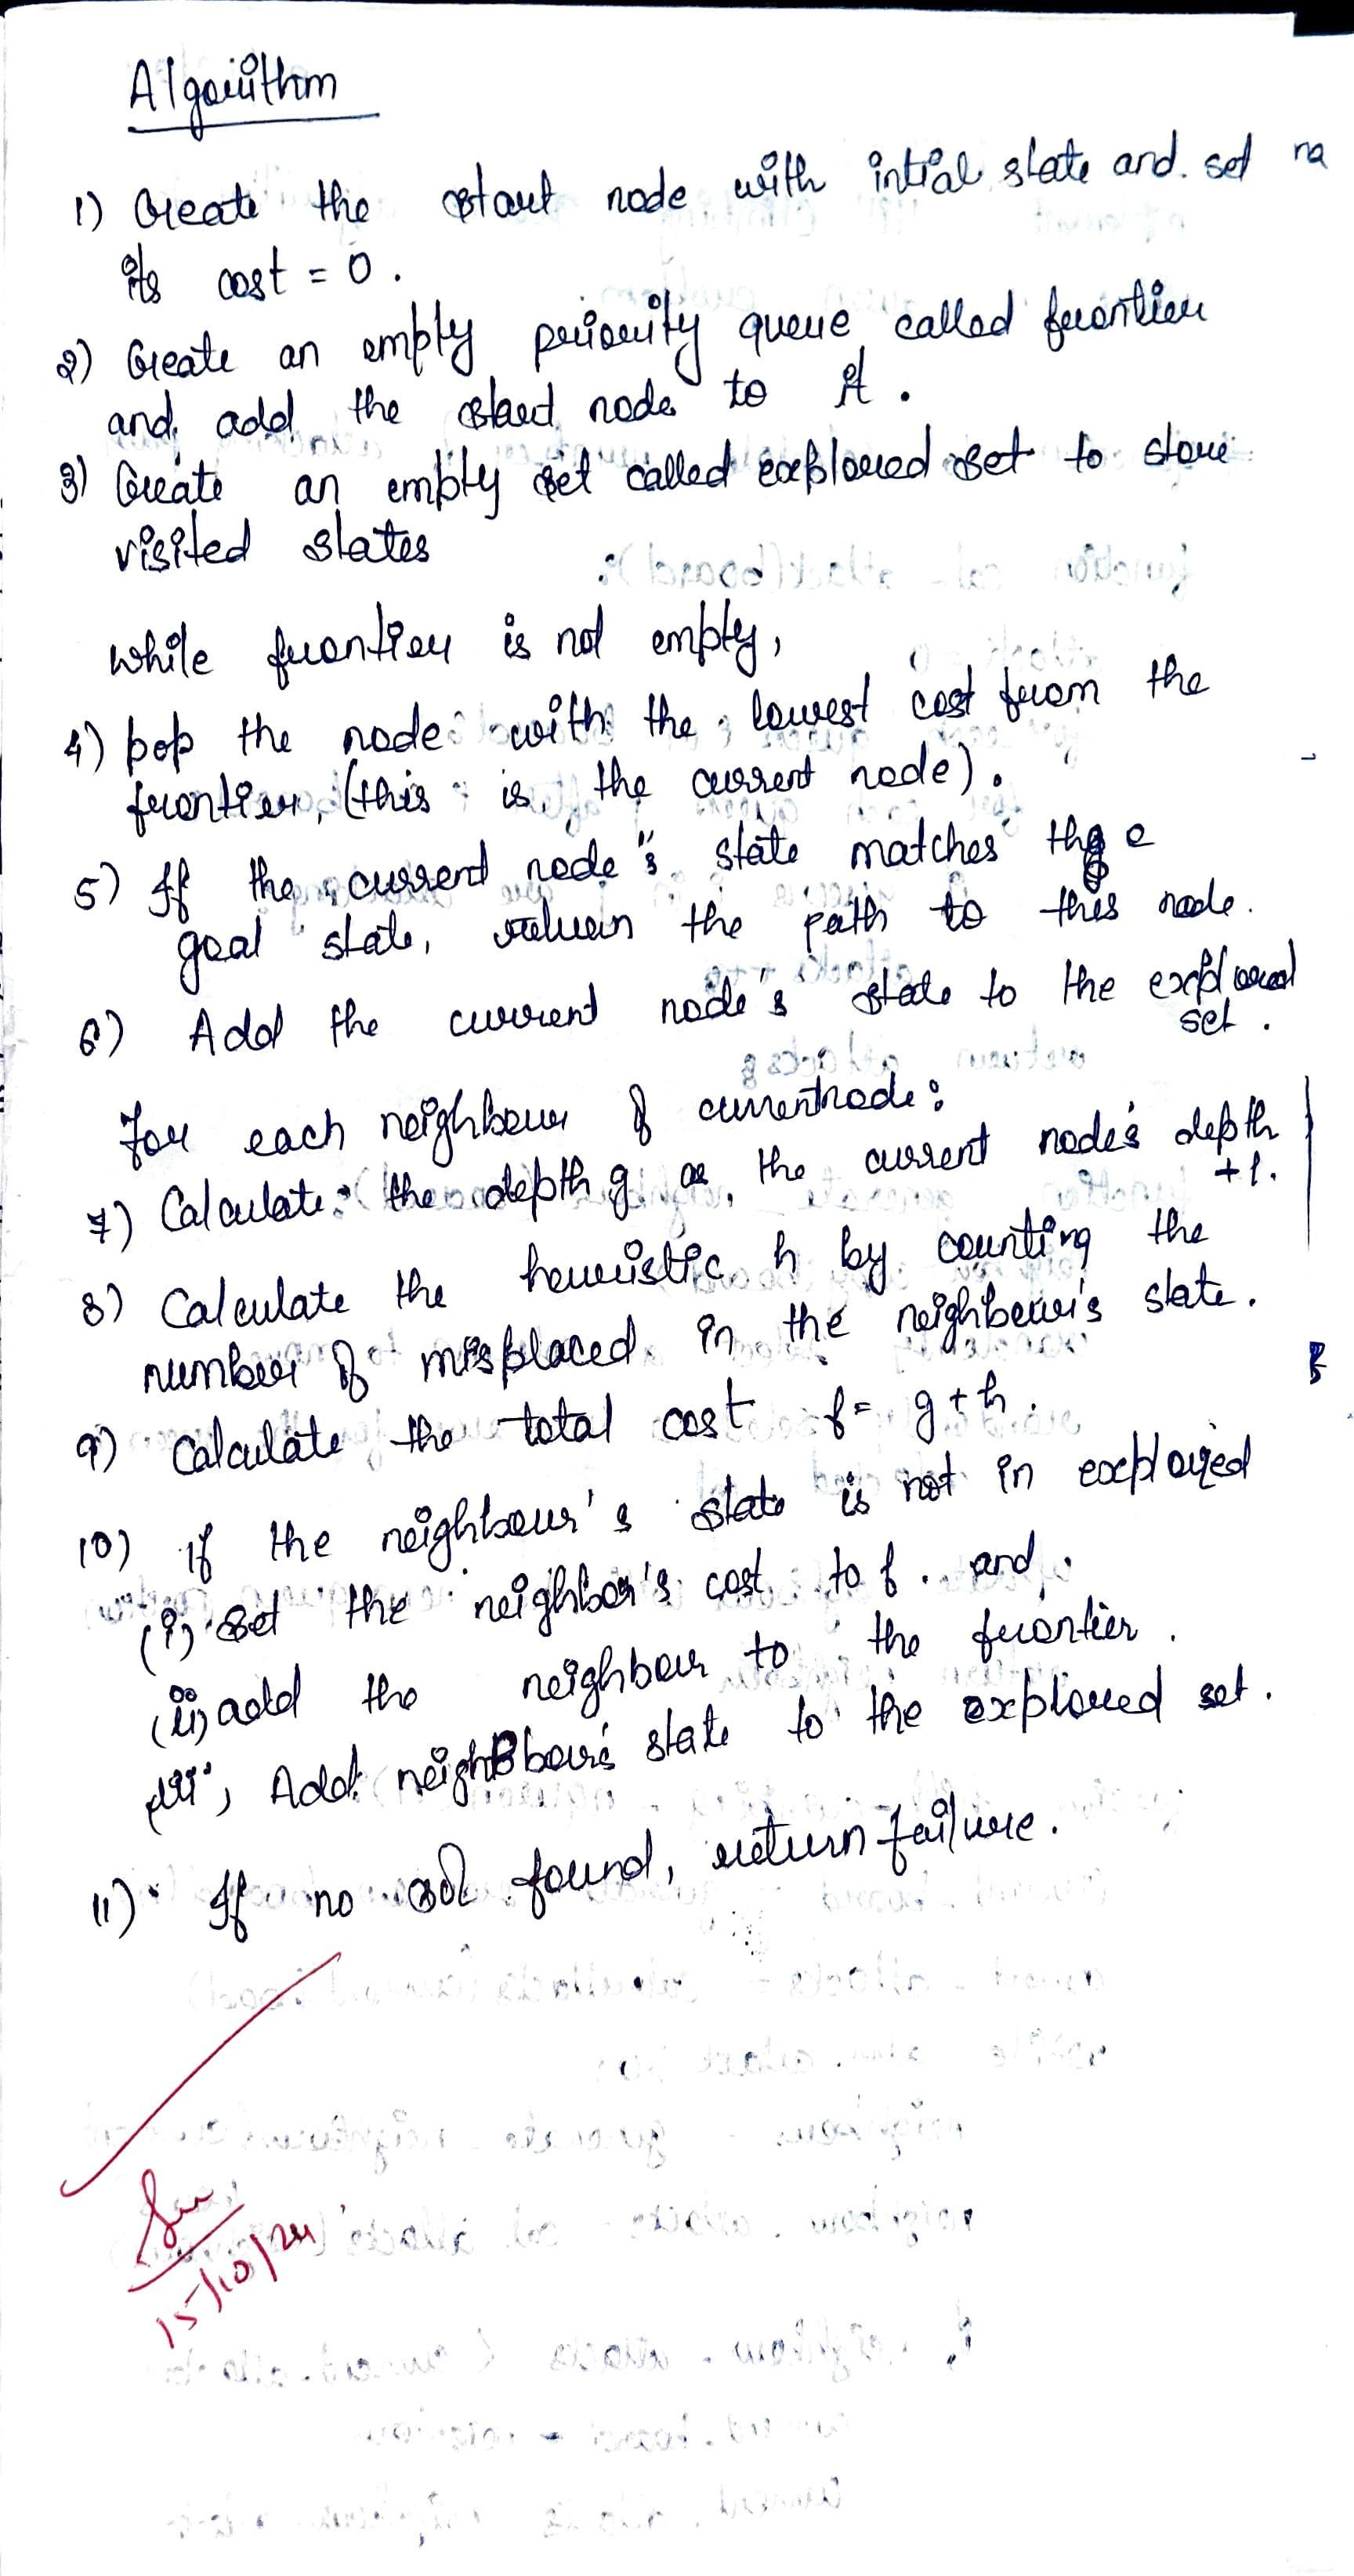 Algorithm
1) Create the start node with intial state and set na
its cost = 0.
2) Create an empty priority queue called frontier
and add the start node to it.
3) Create an empty set called explored set to store
visited states
while frontier is not empty,
4) pop the node with the lowest cost from the
frontier, (this is the current node).
5) If the current node's state matches the
goal state, return the path to this node.
6) Add the current node's state to the explored
set.
For each neighbour of currentnode:
7) Calculate the depth g as the current node's depth
+1.
8) Calculate the heuristic h by counting the
number of misplaced in the neighbour's state.
9) Calculate the total cost f = g+h.
10) if the neighbour's state is not in explored
(i) Set the neighbor's cost to f. and
(ii) add the neighbour to the frontier.
(iii) Add neighbour's state to the explored set.
11) If no sol found, return failure.
15/10/24